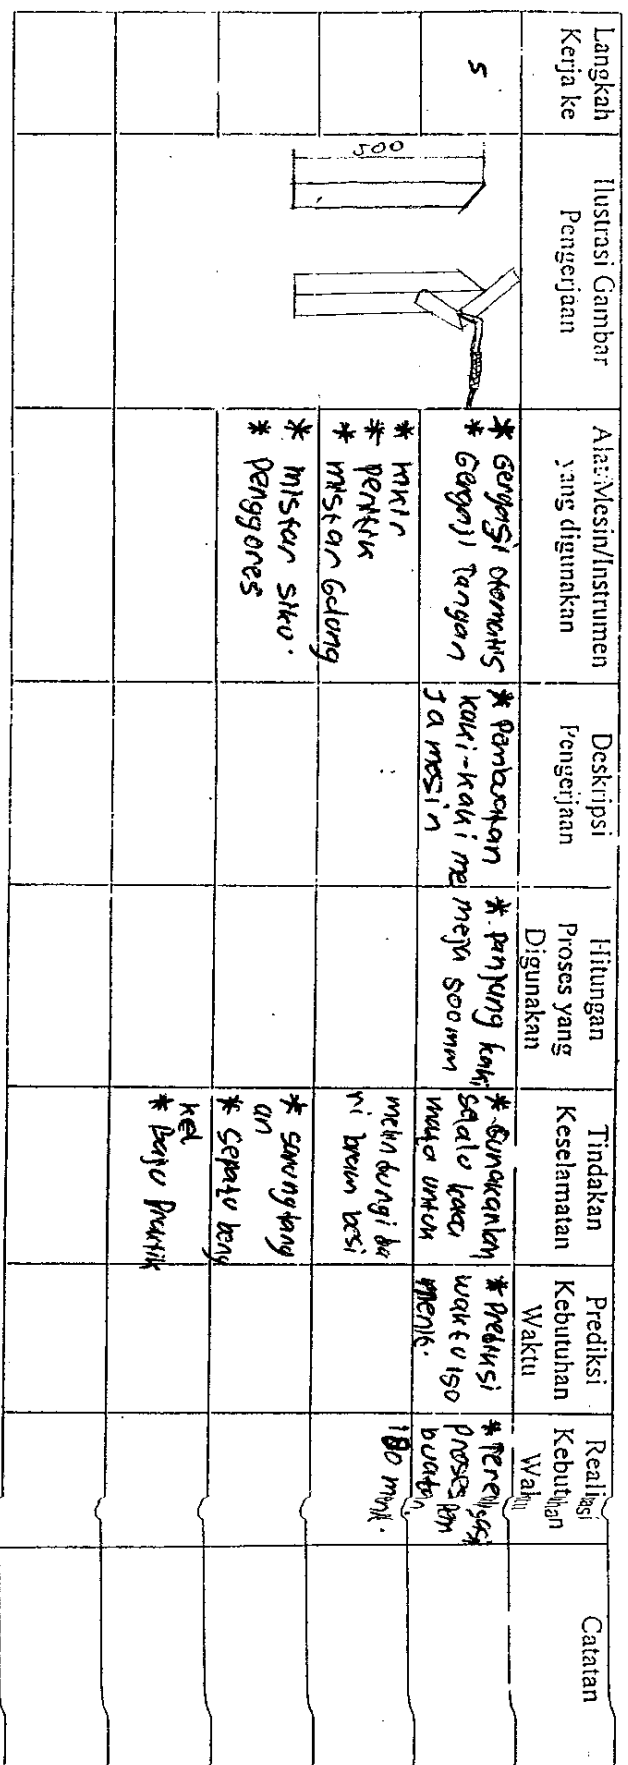 Langkah
Kerja ke
Ilustrasi Gambar
Pengerjaan
Alat/Mesin/Instrumen
yang digunakan
Deskripsi
Pengerjaan
Hitungan
Proses yang
Digunakan
Tindakan
Keselamatan
Prediksi
Kebutuhan
Waktu
Realisasi
Kebutuhan
Waktu
Catatan
5
500
* Gergaji otomatis
* Gergaji Tangan
* mikir
* penitik
* mistar Gulung
* mistar siku.
* penggores
* Pembuatan
kaki-kaki me
Ja mesin
* panjang kaki
meja 500 mm
* Gunakanlah
selalu kaca
mata untuk
melindungi da
ri bram besi
* sarung tang
an
* Sepatu beng
kel
* Baju Praktik
* Prediksi
waktu 150
menit.
proses pem
buatan
180 menit.